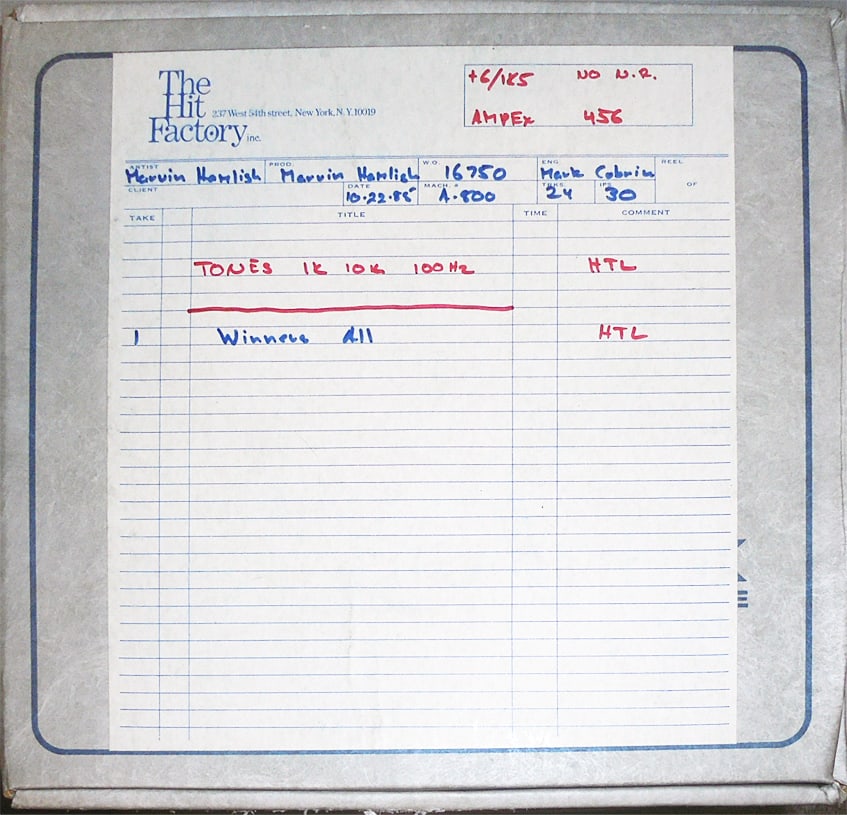 The
Hit
Factory inc.
237 West 54th street, New York, N.Y. 10019
+6/185 NO N.R.
AMPEX 456
ARTIST PROD. W.O. ENG. REEL
Marvin Hamlish Marvin Hamlish 16750 Mark Cobrin
CLIENT DATE MACH. # TRKS. IPS OF
10.22.85 A-800 24 30
TAKE TITLE TIME COMMENT
TONES 1K 10K 100Hz HTL
1 Winners All HTL